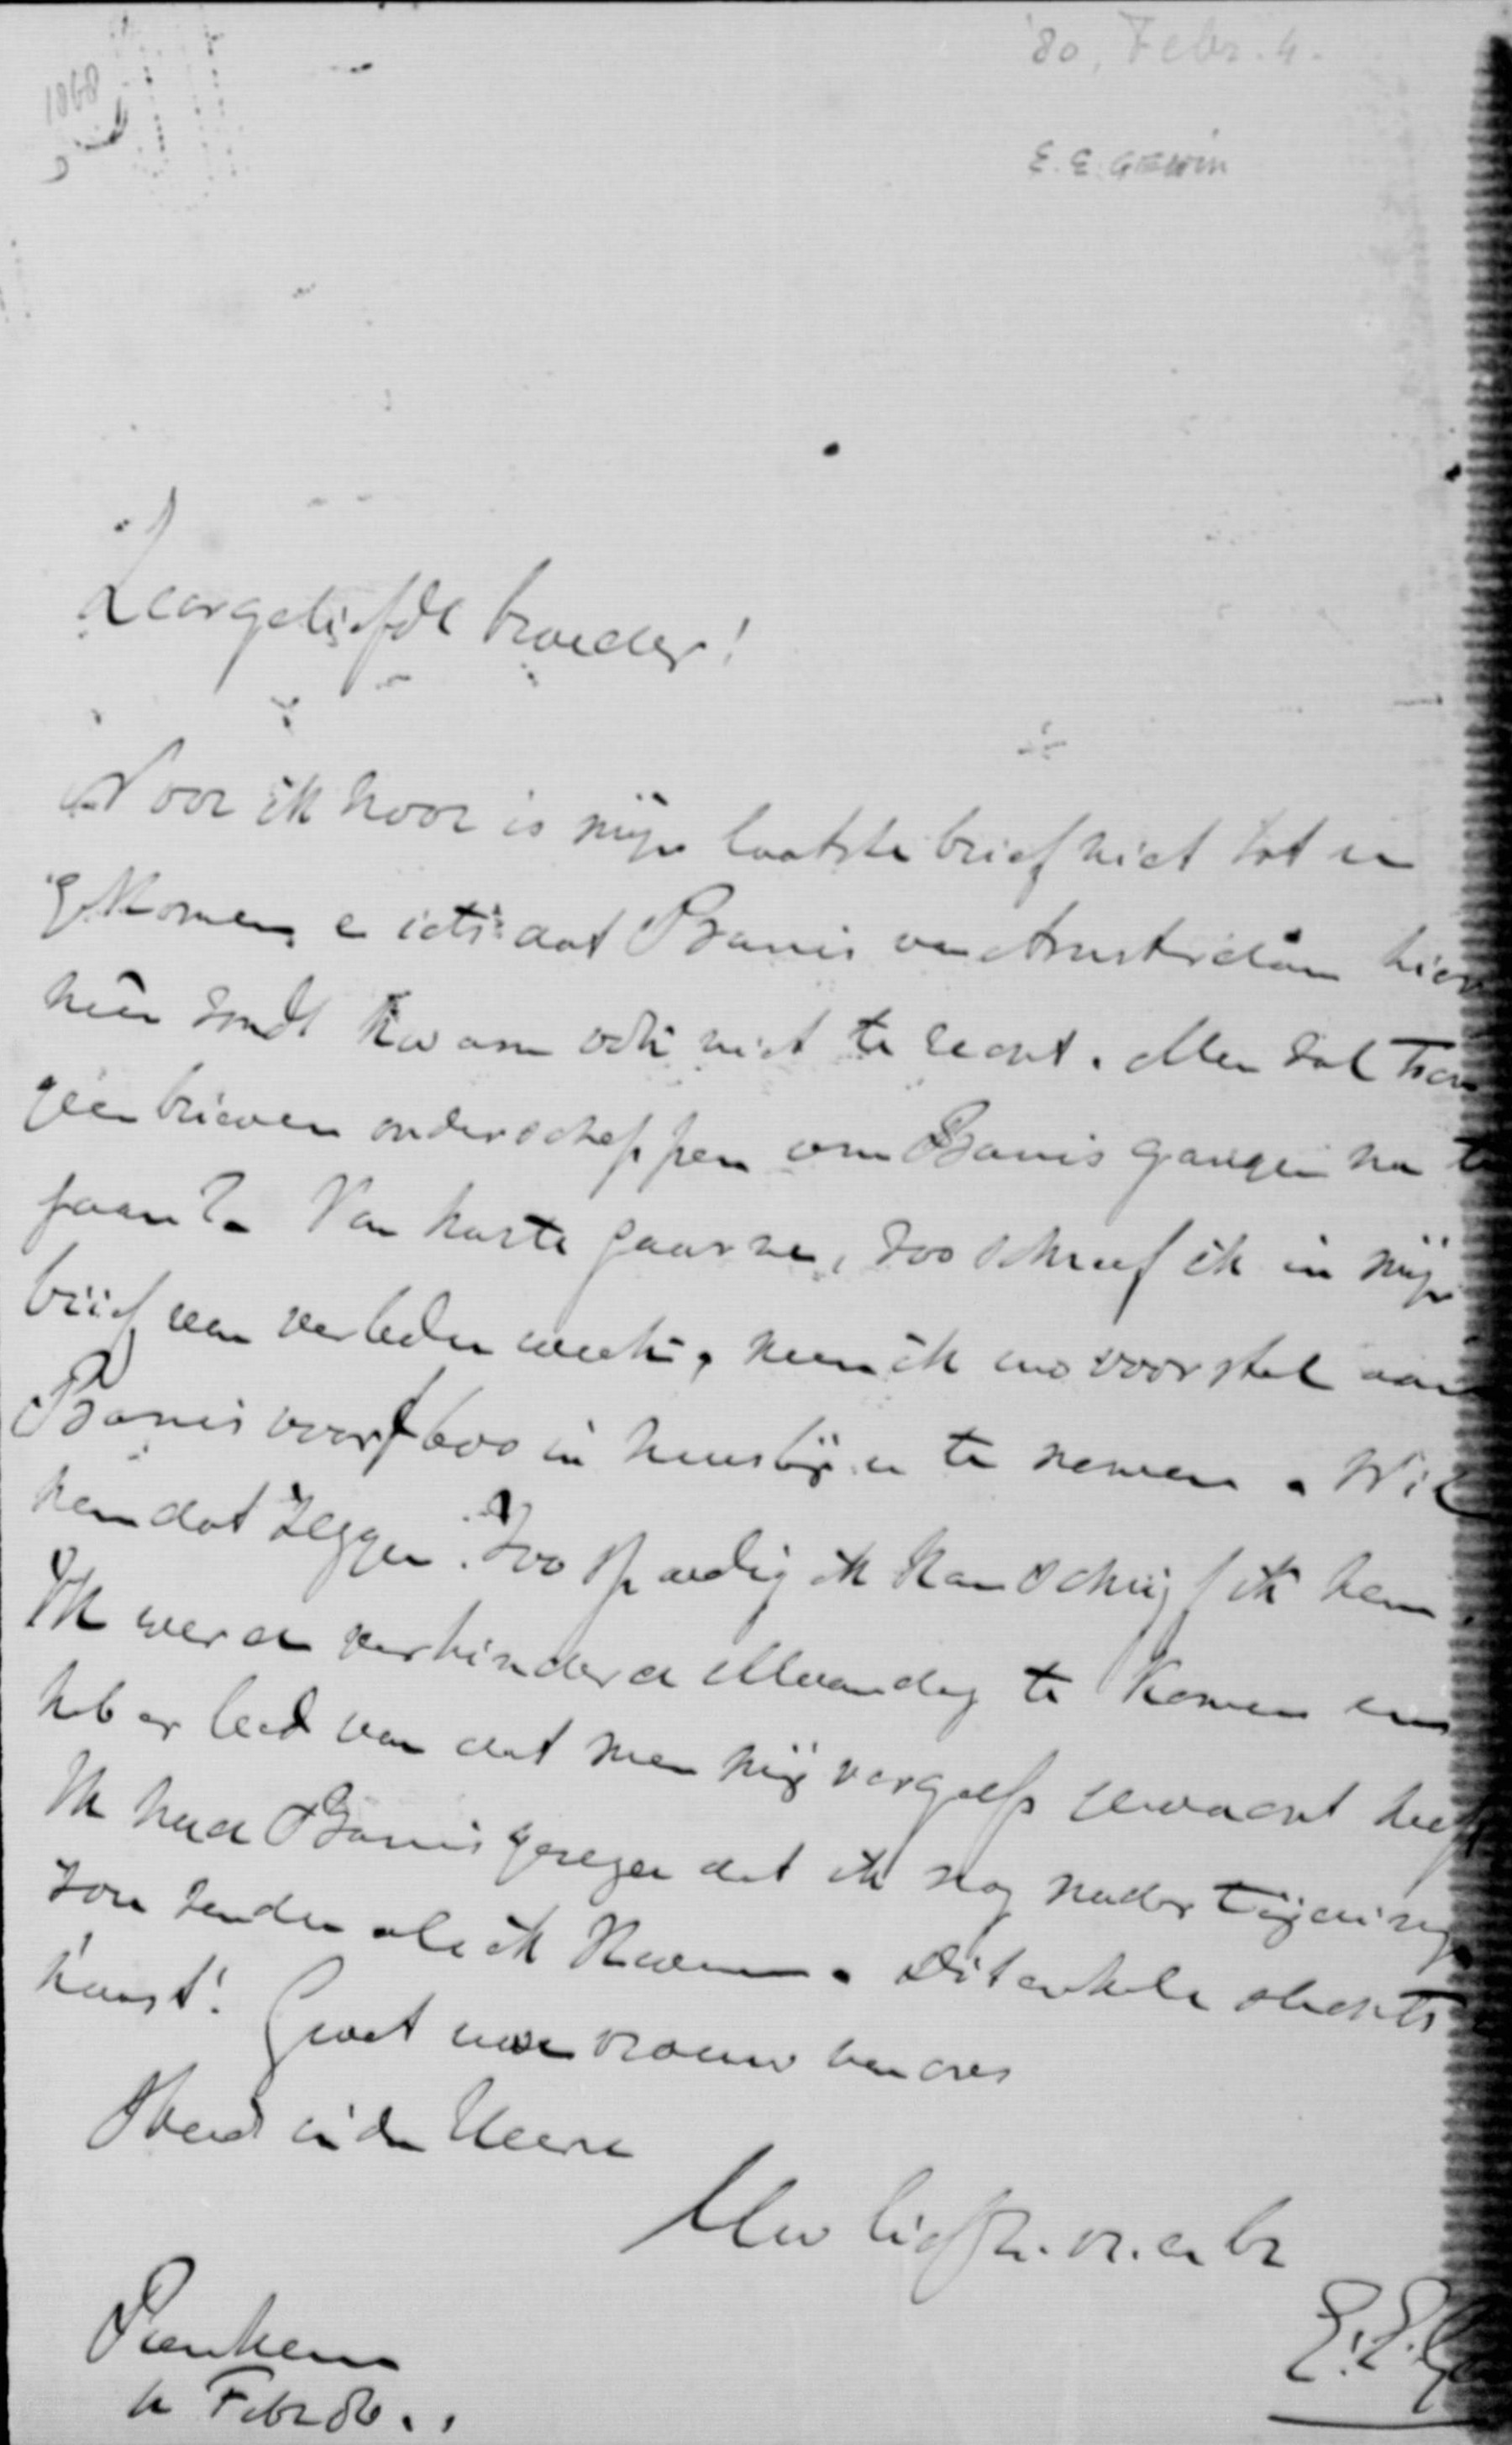 '80, Febr. 4.
E. E. GEWIN
1868
Zeergeliefde broeder!
Naar ik hoor is mijn laatste brief niet tot u
gekomen, en iets dat Banis van Amsterdam hier
heen zondt kwam ook niet te recht. Men zal toch
geen brieven onderscheppen om Banis gangen na te
gaan? Van harte gaarne, zoo schreef ik in mijn
brief van verleden week, neem ik uw voorstel aan
Banis voor f 600 in huis bij u te nemen. Wil
hem dat zeggen. Zoo spoedig ik kan schrijf ik hem.
Ik werd verhinderd Maandag te komen en
heb er leed van dat men mij vergeefs gewacht heeft
Ik had Banis gezegd dat ik nog nader tijding
zou zenden als ik kwam. Dit enkele slechts in
haast! Groet uwe vrouw van ons
Steeds in den Heere
Uw liefh. vr. en br
E. E. Ge
4 Febr 80.